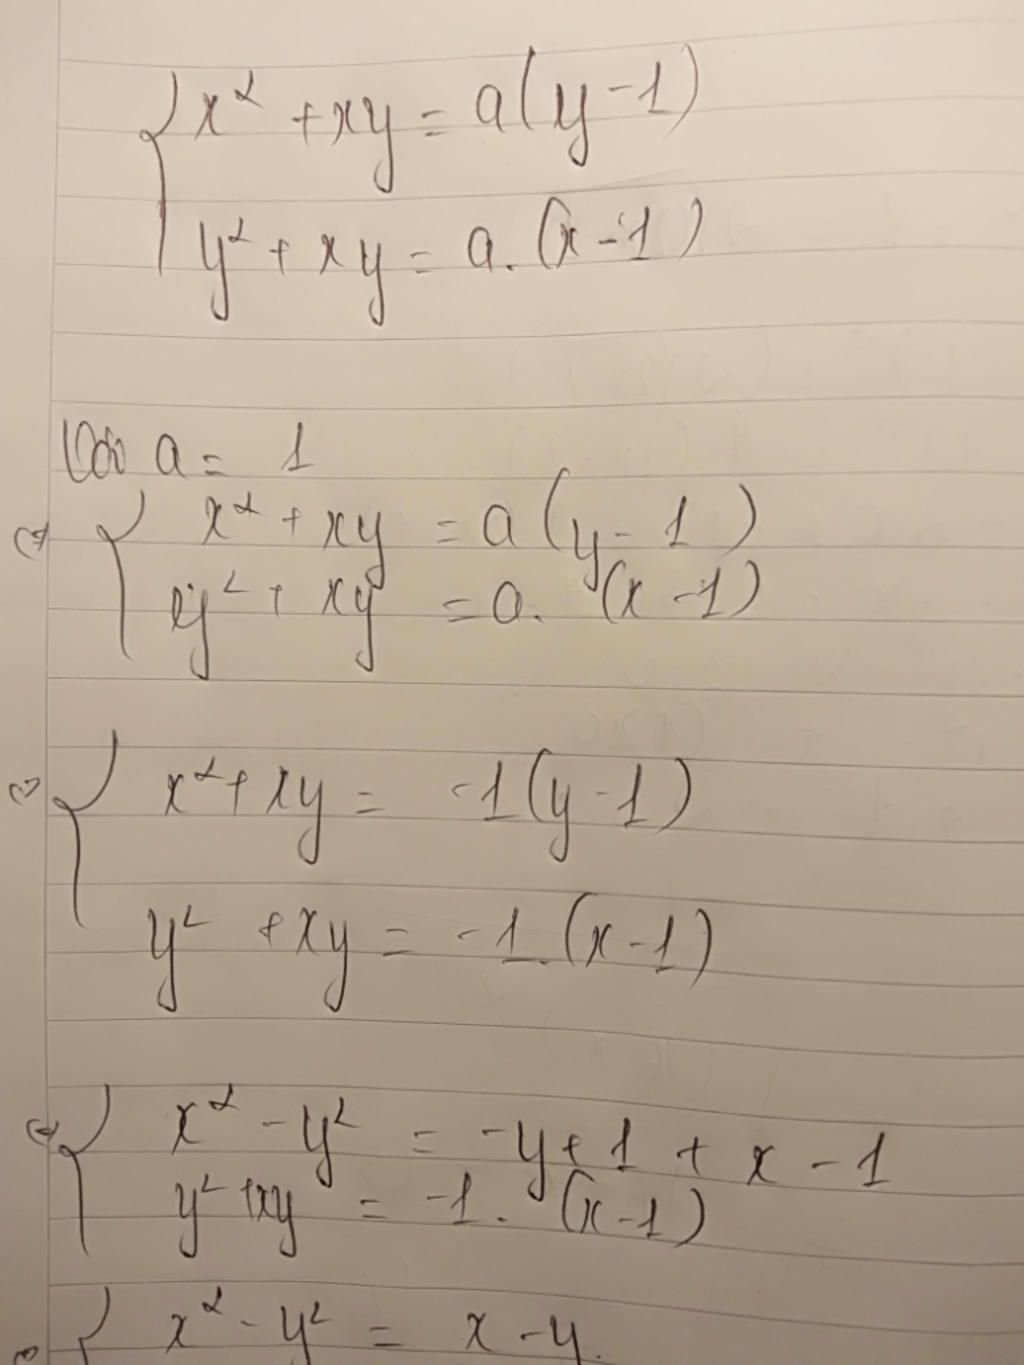 x² + xy = a(y - 1)
y² + xy = a. (x - 1)
Với a = 1
(=) x² + xy = a (y - 1)
y² + xy = a. (x - 1)
(=) x² + xy = -1(y - 1)
y² + xy = -1. (x - 1)
(=) x² - y² = -y + 1 + x - 1
y² + xy = -1. (x - 1)
x² - y² = x - y.